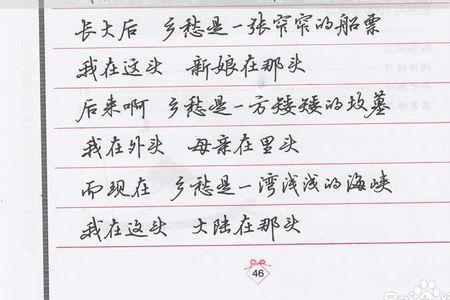 长大后 乡愁是一张窄窄的船票
我在这头 新娘在那头
后来啊 乡愁是一方矮矮的坟墓
我在外头 母亲在里头
而现在 乡愁是一湾浅浅的海峡
我在这头 大陆在那头
46